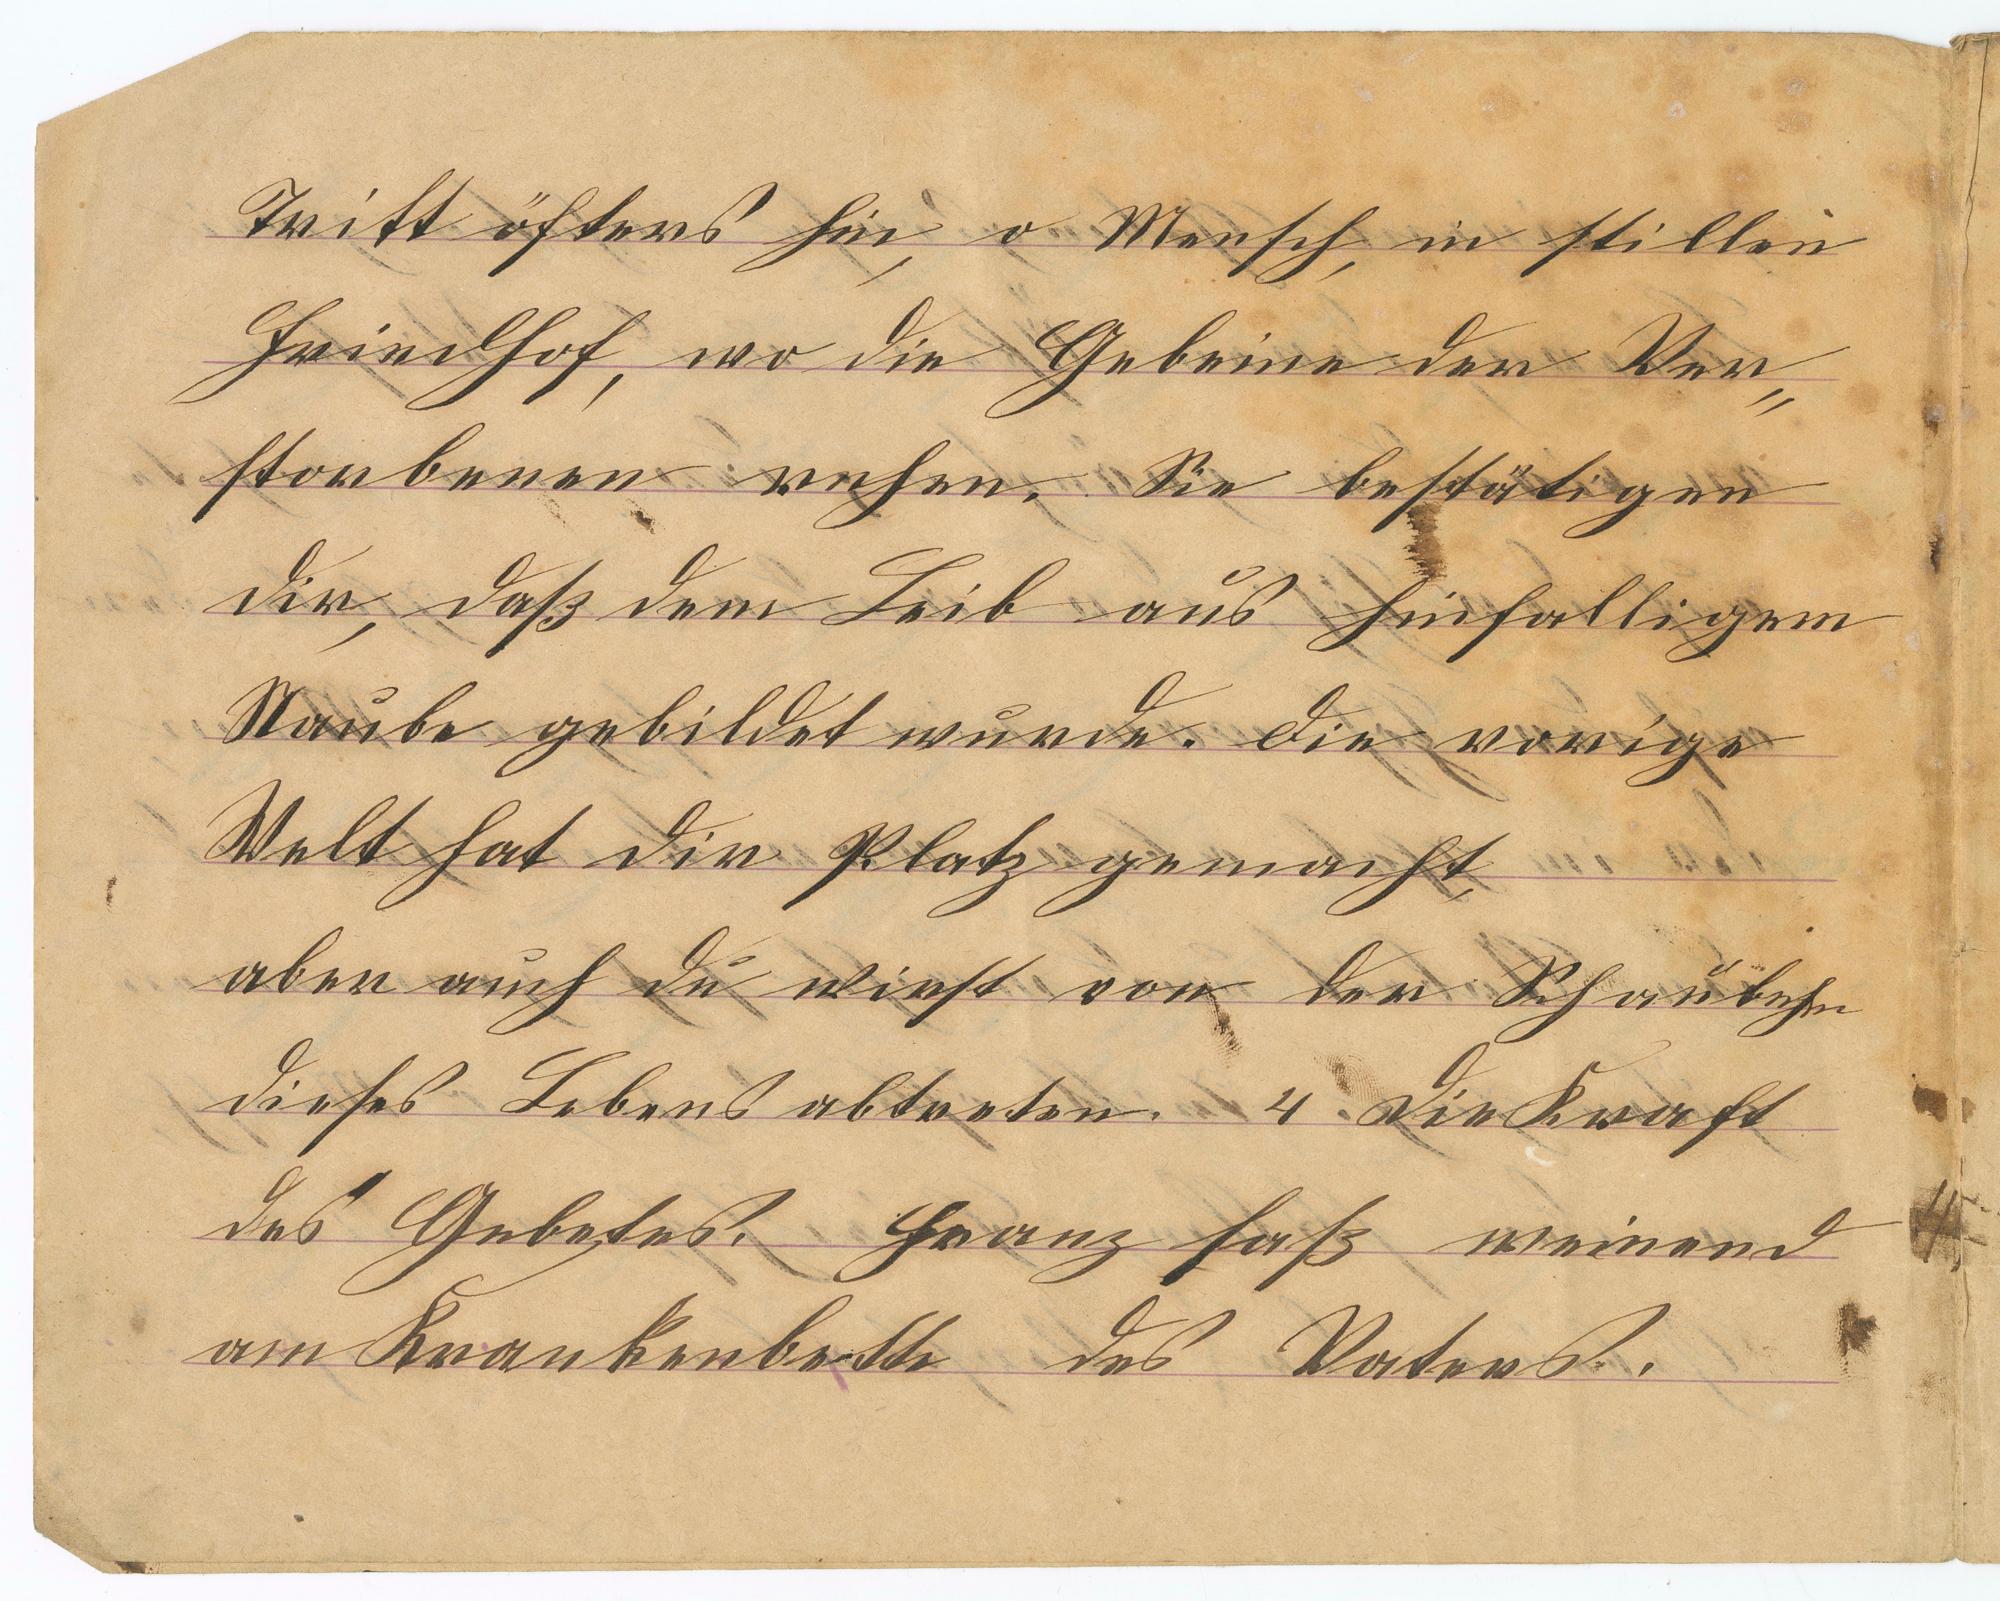 Tritt öfters hin, o Mensch, in stillen
Friedhof, wo die Gebeine der Ver„
storbenen ruhen. Sie bestätigen
dir, daß dem Leib aus hinfalligem
Staube gebildet wurde. Die vorige
Welt hat dir Platz gemacht,
aber auch du wirst von der Schaubehn
dieses Lebens abtreten. 4. Die Kraft
des Gebetes. Franz saß weinend
am Krankenbette des Vaters.